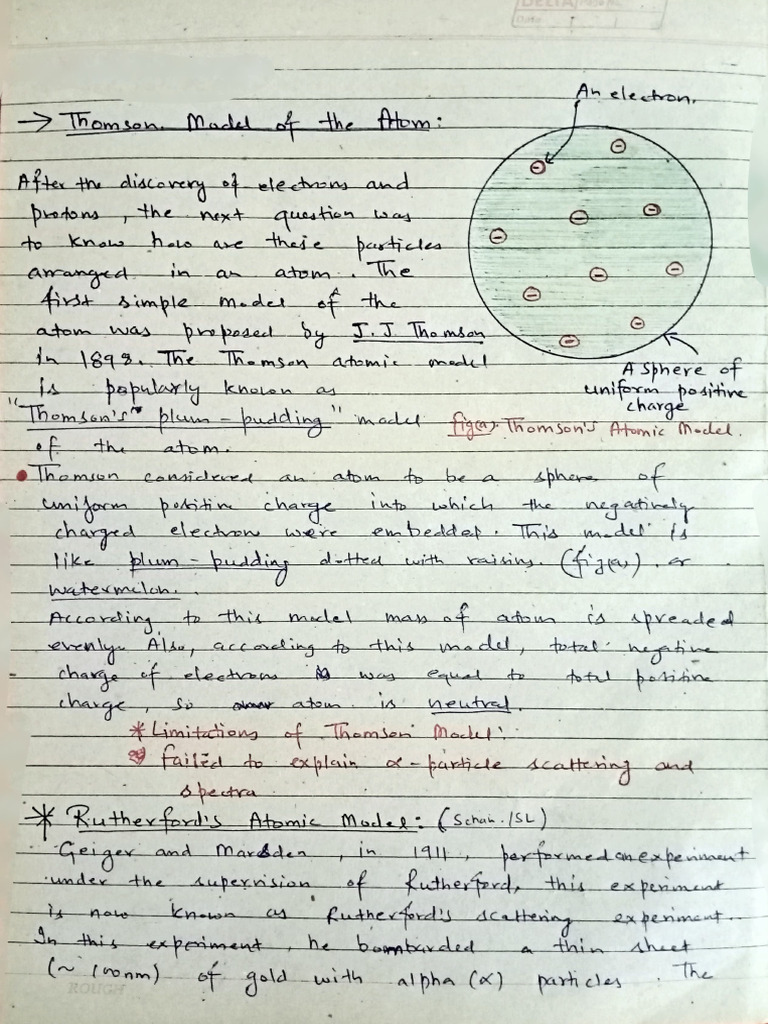 DELTA
Date
An electron.
→ Thomson Model of the Atom:
After the discovery of electrons and
protons, the next question was
to know how are these particles
arranged in an atom. The
first simple model of the
atom was proposed by J.J. Thomson
in 1898. The Thomson atomic model
is popularly known as
"Thomson's plum-pudding" model
of the atom.
A sphere of
uniform positive
charge
fig(a). Thomson's Atomic Model.
• Thomson considered an atom to be a sphere of
uniform positive charge into which the negatively
charged electron were embedded. This model is
like plum-pudding dotted with raisins. (fig(a)). or
watermelon.
According to this model mass of atom is spreaded
evenly. Also, according to this model, total negative
charge of electrons was equal to total positive
charge, so atom is neutral.
* Limitations of Thomson Model:
failed to explain α-particle scattering and
spectra
* Rutherford's Atomic Model: (Scham./SL)
Geiger and Marsden, in 1911, performed an experiment
under the supervision of Rutherford, this experiment
is now known as Rutherford's scattering experiment.
In this experiment, he bombarded a thin sheet
(~100nm) of gold with alpha (α) particles. The
ROUGH